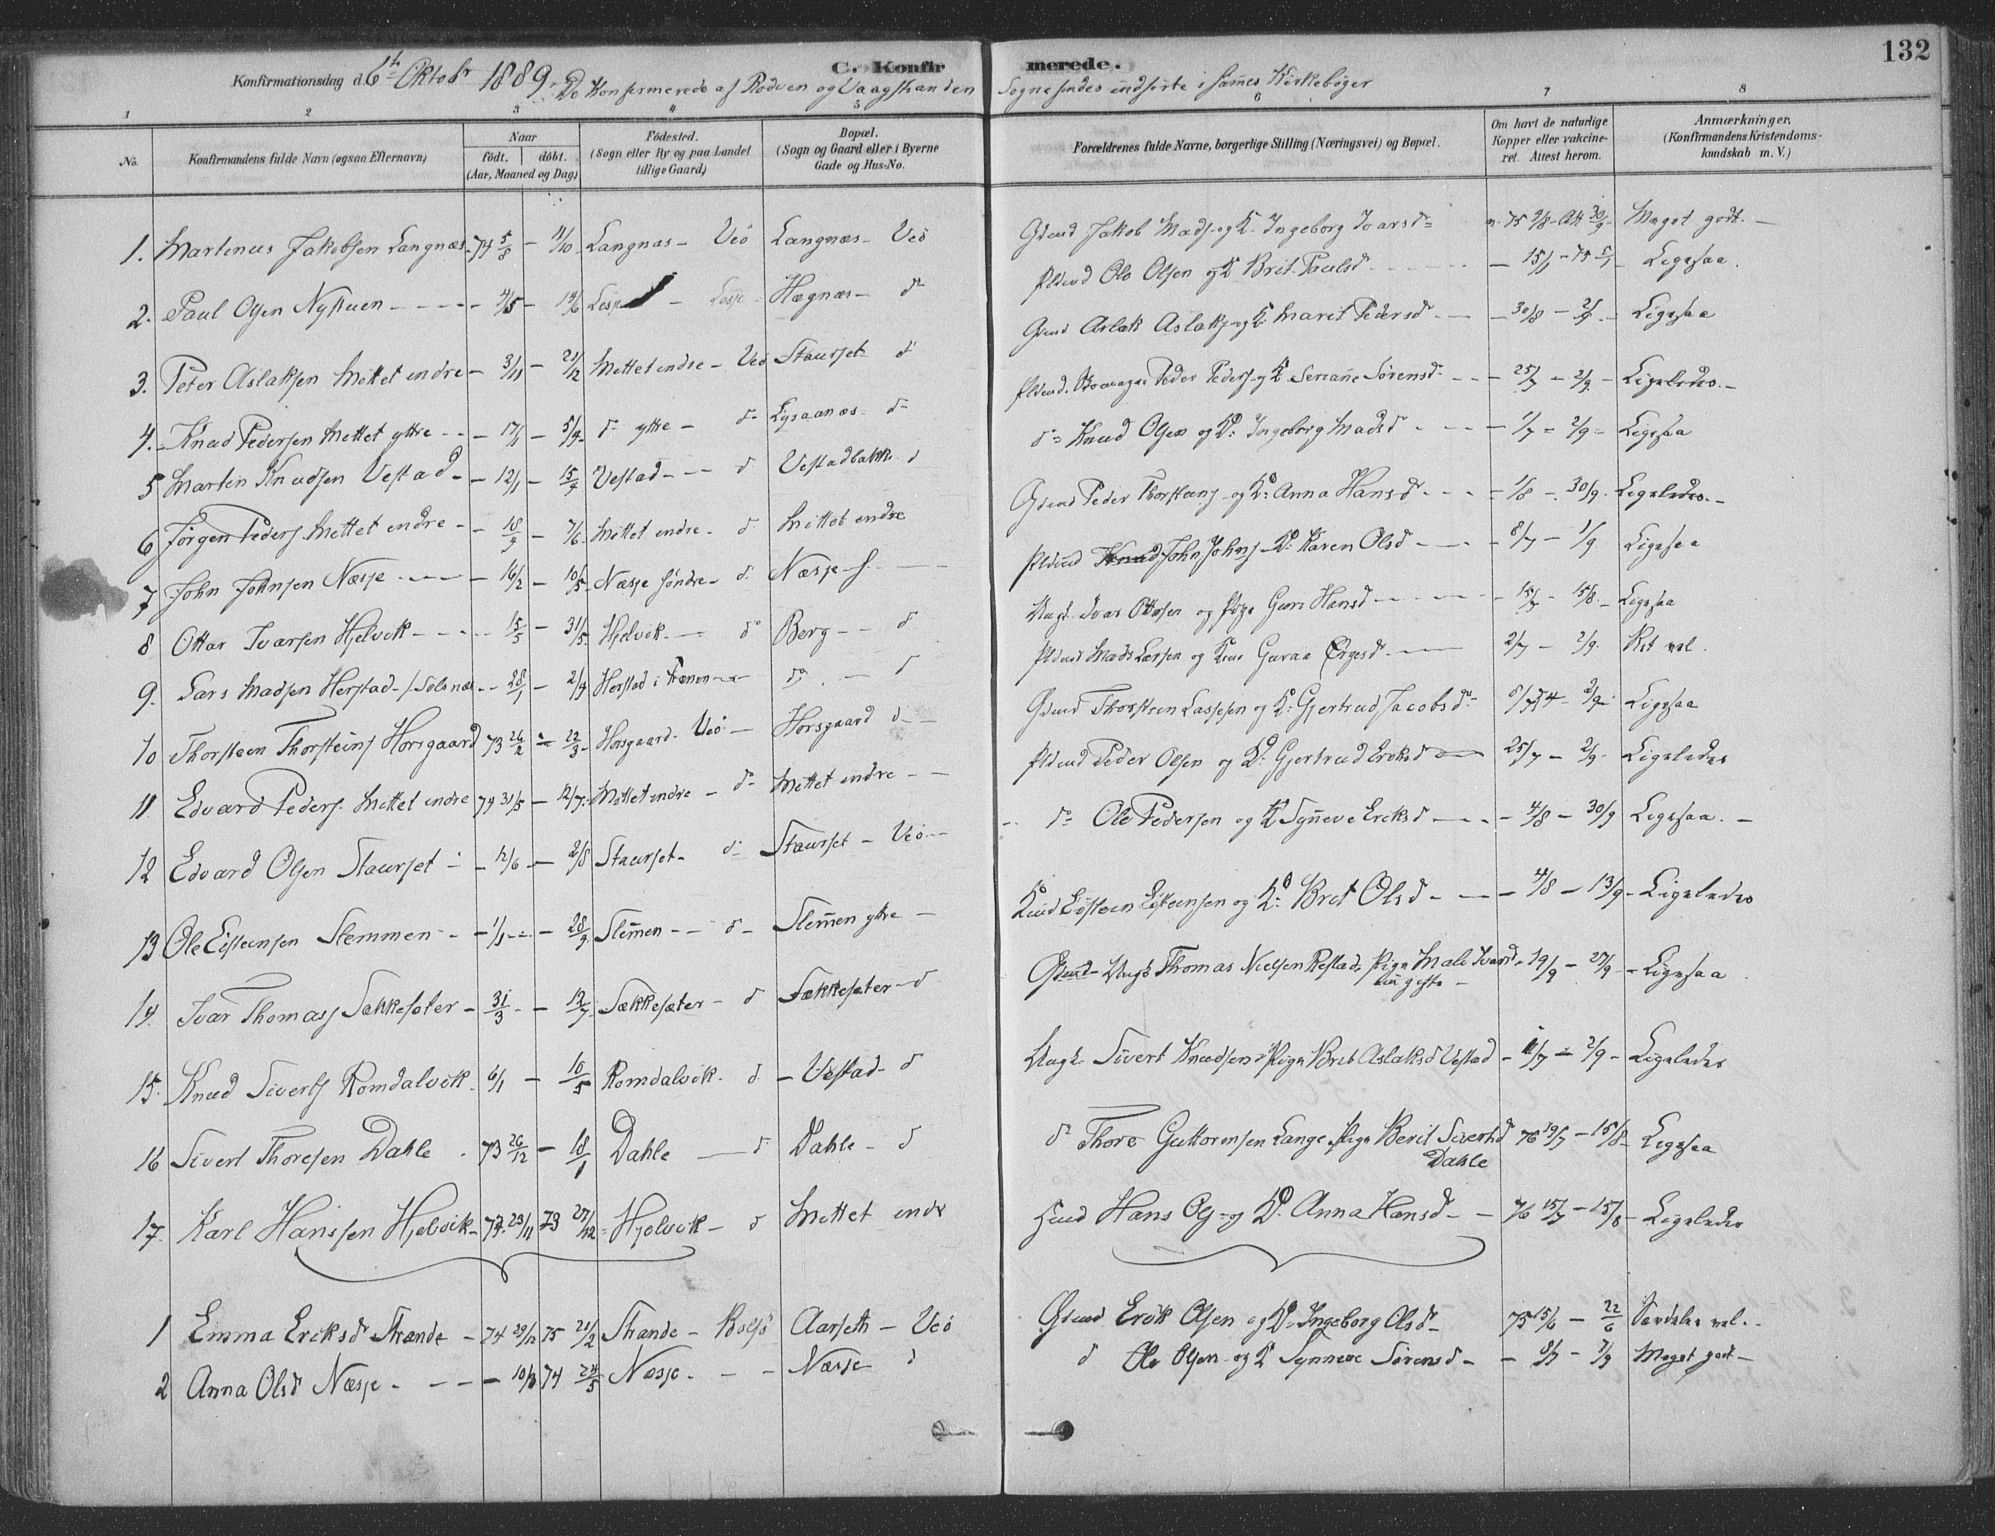 132
C. Konfirmerede.
Konfirmationsdag d. 6te Oktobr 1889. De Konfirmerede af Rødven og Vaagstranden Sogne findes indførte i sames Kirkebøger
1 2 3 4 5 6 7 8
No. Konfirmandens fulde Navn (ogsaa Efternavn) Naar født. døbt. (Aar, Maaned og Dag) Fødested. (Sogn eller By og paa Landet tillige Gaard) Bopæl. (Sogn og Gaard eller i Byerne Gade og Hus-No. Forældrenes fulde Navne, borgerlige Stilling (Næringsvei) og Bopæl. Om havt de naturlige Kopper eller vakcineret. Attest herom. Anmærkninger. (Konfirmandens Kristendomskundskab m. V.)
1. Martinus Jakobsen Langnæs 74 5/8 – 4/10 Langnæs – Veö Langnæs – Veö Gdmd Jakob Mads. og K. Ingeborg Ivarsd. 75 9/8 Att 30/9 Meget godt. –
2. Paul Olsen Nystuen – 4/5 – 14/6 Lesje – Lesje Hægnæs – do Pldmd Ole Olsen og K Brit Paulsd – 15/1 – 75 5/1 – Ligesaa.
3. Peter Aslaksen Mittet indre – 3/11 – 21/12 Mittet indre – Veö Staurset d Gdmd Aslak Aslaks. og K. Marit Pedersd. – 30/8 – 2/9 – Ligesaa
4. Knud Pedersen Mittet ytre – 17/1 – 5/4 do ytre – do Lysaanæs do Pldmd. Peder Peders. og K. Serianne Sørensd. – 25/7 – 2/9 – Ligeledes. –
5 Martin Knudsen Vestad – 12/1 – 15/4 Vestad – d Vestadbakk. d do Knud Olsen og K. Ingeborg Madsd – 1/7 – 2/9 – Ligesaa
6 Jørgen Peders. Mittet indre – 18/4 – 7/6 Mittet indre – d Mittet indre Gdmd Peder Thorsteins. og K. Anna Hansd – 1/8 – 30/9 Ligeledes. –
7 John Johnsen Næsje – 16/2 – 10/5 Næsje søndre – d. Næsje s. Pldmd John Johns. K. Karen Olsd – 8/7 – 1/9 Ligesaa
8 Ottar Ivarsen Hjelvik – 15/5 – 31/5 Hjelvik – do Berg – d Ungk. Ivar Ottosen og Pige Guri Hansd – 15/7 – 15/8 – Ligesaa
9. Lars Madsen Herstad – Solsnæs – 28/1 – 2/4 Herstad i Frænen do – d Pldmd Mads Larsen og Kone – 2/7 – 2/9 Ret vel.
10 Thorsteen Thorsteins. Horsgaard 73 26/2 – 22/3 Horsgaard. Veö – Horsgaard d – Gdmd Thorsteen Lassesen og K. Gjertrud Jacobsdr 8/7 – 2/9 Ligesaa
11 Edvard Peders. Mittet indre 74 31/5 – 12/7 Mittet indre – do Mittet indre – Pldmd Peder Olsen og K. Gjertrud Eriksd 25/7 – 2/9 Ligeledes
12 Edvard Olsen Staurset – – 12/6 – 2/8 Staurset. do Staurset – Veö – do Ole Pedersen og K Synneve Eriksd – 4/8 – 30/9 Ligesaa. –
13 Ole Eisteinsen Stemmen – 1/1 – 28/3 Stemen – d – Stemmen ytre – Eisteen Eisteensen og K. Brit Olsd – – 4/8 – 13/9 – Ligeledes
14. Ivar Thomass. Sækkesæter – 31/3 – 12/7 Sækkesæter – d Sækkesæter – d Ungk Thomas Nielsen Restad, Pige Mali Ivarsd 19/9 – 27/9 – Ligesaa
ugifte –
15. Knud Siverts. Romdalsvik 6/1 – 10/5 Romdalsvik. d. – Vestad – d Ungk. Sivert Knudsen, Pige Brit Aslaksd Vestad – 11/7 – 2/9 – Ligeledes
16 Sivert Thoresen Dahle. 73 26/12 – 18/1 Dahle – d Dahle – d do Thore Guttormsen Lange, Pige Berit Sivertsd 76 19/7 – 15/8 – Ligesaa
Dahle
17. Karl Hanssen Hjelvik – 23/11 73 27/12 Hjelvik – d Mittet indr Hans Ols. og K. Anna Hansd – – 76 15/7 – 15/8 – Ligeledes
1 Emma Eriksd Strande – 74 29/12 75 21/2 Strande – Bolsö Aarseth – Veö Gdmd Erik Olsen og K. Ingeborg Olsd – 75 15/6 – 22/6 Særdeles vel. –
2 Anna Olsd Næsje – – – 10/3 74 24/5 Næsje. – – Næsje d d Ole Olsen og K Synneve Sørensd – – 8/7 – 7/9 Meget godt –